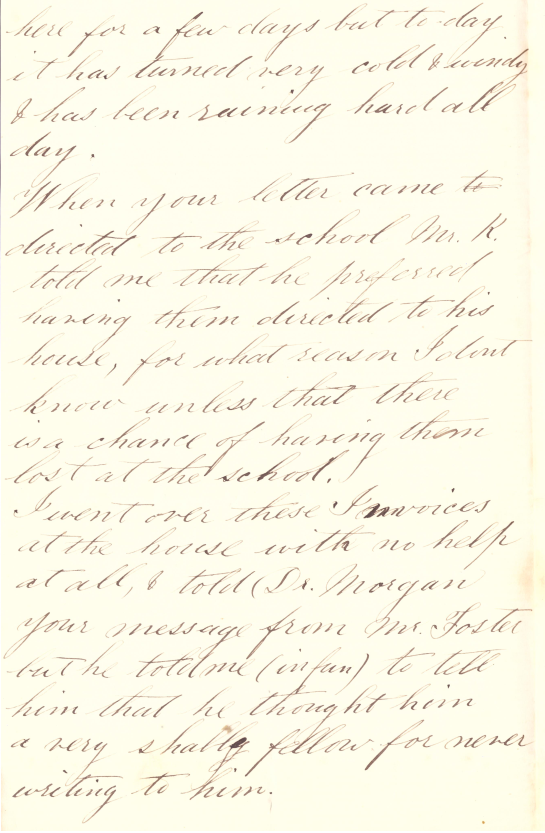 here for a few days but to-day
it has turned very cold & windy
& has been raining hard all
day.
When your letter came to
directed to the school Mr. K.
told me that he preferred
having them directed to his
house, for what reason I dont
know unless that there
is a chance of having them
lost at the school.
I went over these Invoices
at the house with no help
at all, & told Dr. Morgan
your message from Mr. Foster
but he told me (in fun) to tell
him that he thought him
a very shabby fellow for never
writing to him.